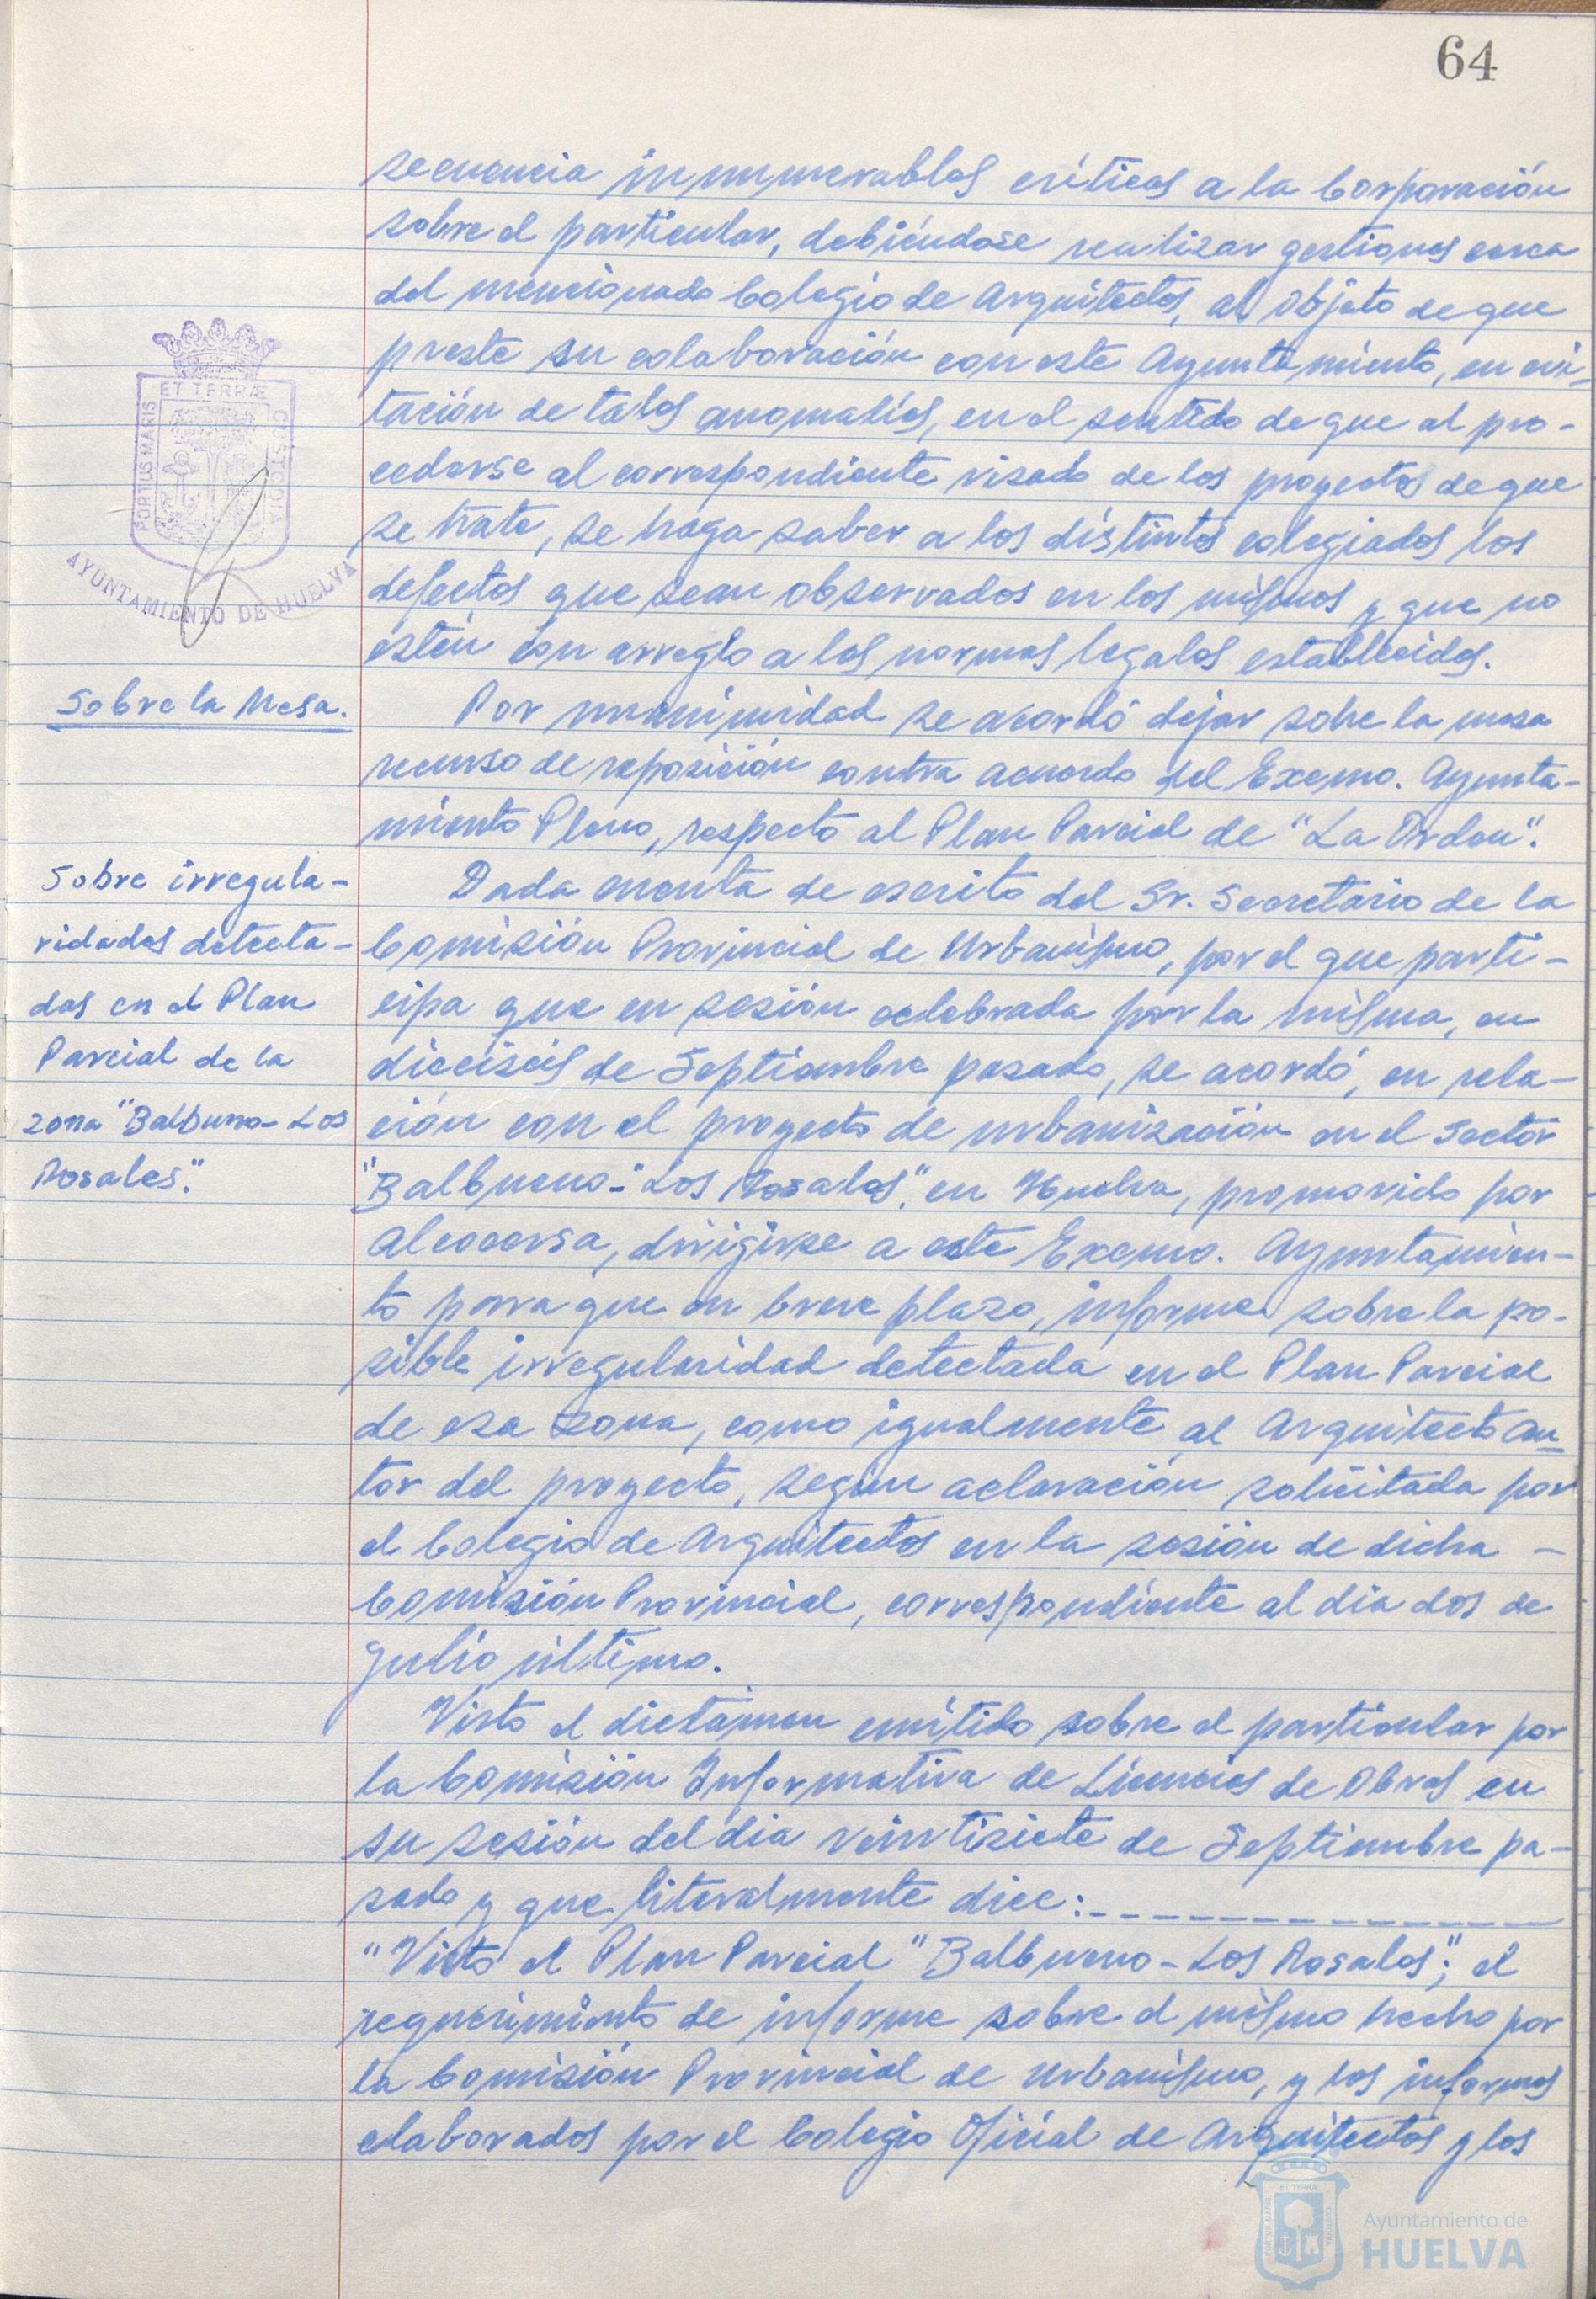 64
secuencia innumerables críticas a la Corporación
sobre el particular, debiéndose realizar gestiones cerca
del mencionado Colegio de Arquitectos, al objeto de que
preste su colaboración con este Ayuntamiento, en evi-
tación de tales anomalías, en el sentido de que al pro-
cederse al correspondiente visado de los proyectos de que
se trate, se haga saber a los distintos colegiados los
defectos que sean observados en los mismos y que no
estén con arreglo a las normas legales establecidas.
ET TERRÆ
PORTUS MARIS
CUSTODIA
AYUNTAMIENTO DE HUELVA
Sobre la Mesa.
Por unanimidad se acordó dejar sobre la mesa
recurso de reposición contra acuerdo del Excmo. Ayunta-
miento Pleno, respecto al Plan Parcial de "La Orden".
Sobre irregula-
ridades detecta-
das en el Plan
Parcial de la
zona "Balbueno-Los
Rosales".
Dada cuenta de escrito del Sr. Secretario de la
Comisión Provincial de Urbanismo, por el que parti-
cipa que en sesión celebrada por la misma, en
dieciséis de Septiembre pasado, se acordó, en rela-
ción con el proyecto de urbanización en el Sector
"Balbueno-"Los Rosales", en Huelva, promovido por
Alcocersa, dirigirse a este Excmo. Ayuntamien-
to para que en breve plazo, informe sobre la po-
sible irregularidad detectada en el Plan Parcial
de esa zona, como igualmente al Arquitecto au-
tor del proyecto, según aclaración solicitada por
el Colegio de Arquitectos en la sesión de dicha -
Comisión Provincial, correspondiente al dia dos de
Julio último.
Visto el dictámen emitido sobre el particular por
la Comisión Informativa de Licencias de Obras en
su sesión del dia veintisiete de Septiembre pa-
sado y que literalmente dice:- - - - - - - - - - -
"Visto el Plan Parcial "Balbueno-Los Rosales"; el
requerimiento de informe sobre el mismo hecho por
la Comisión Provincial de Urbanismo, y los informes
elaborados por el Colegio Oficial de Arquitectos y los
Ayuntamiento de
HUELVA